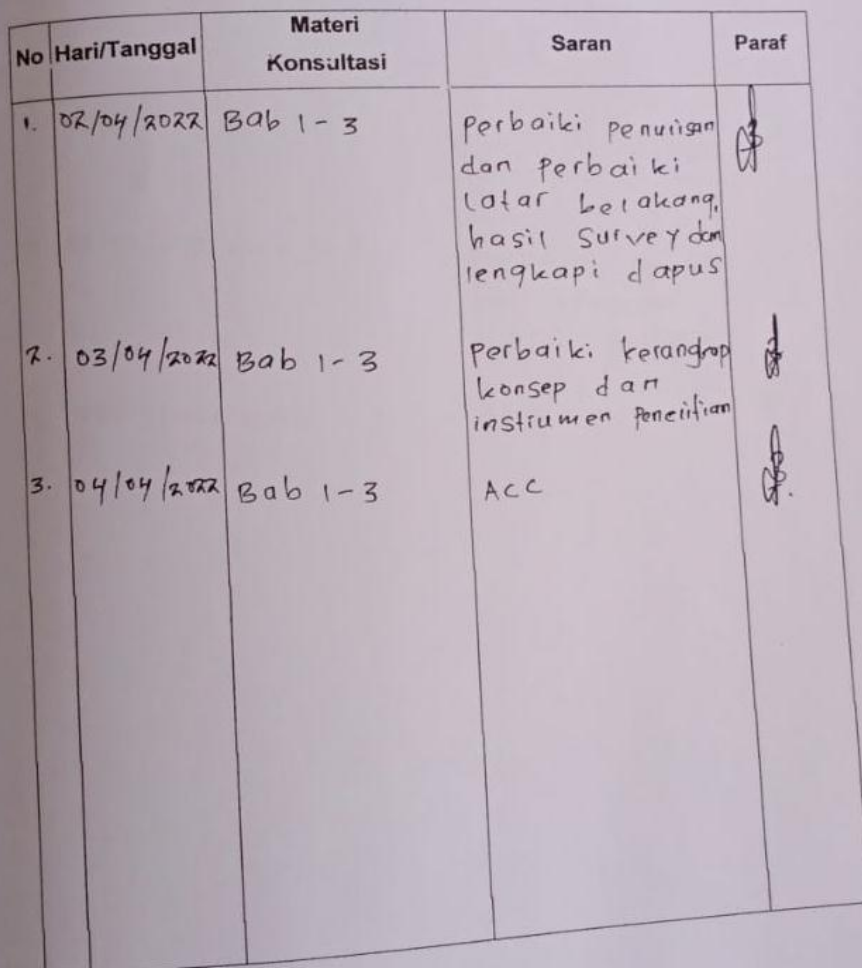 No Hari/Tanggal Materi Konsultasi Saran Paraf
1. 02/04/2022 Bab 1 - 3 perbaiki penulisan
dan perbaiki
latar belakang,
hasil survey dan
lengkapi dapus
2. 03/04/2022 Bab 1 - 3 perbaiki
konsep dan
instrumen penelitian
3. 04/04/2022 Bab 1 - 3 ACC